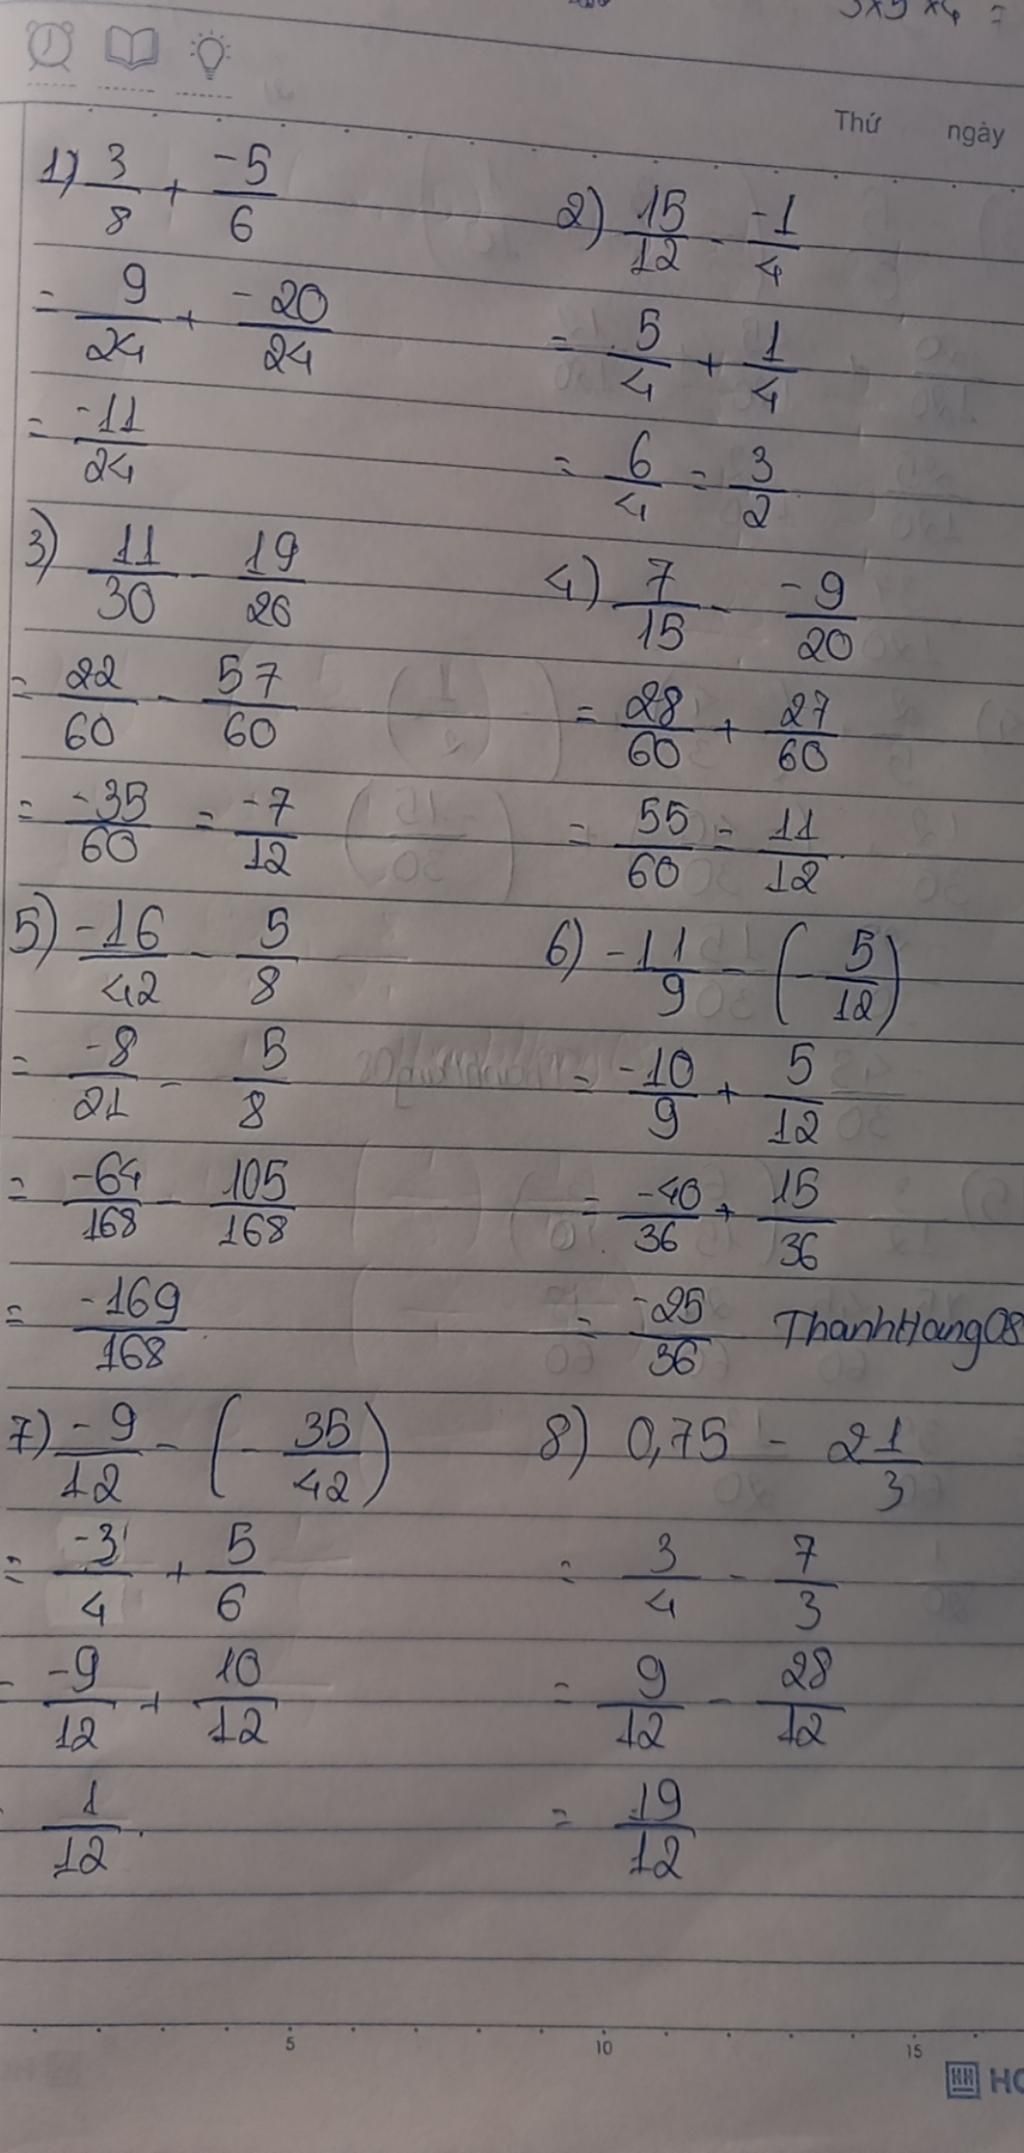 3x5x4 =
Thứ ngày
1) 3/8 + -5/6
= 9/24 + -20/24
= -11/24
2) 15/12 - -1/4
= 5/4 + 1/4
= 6/4 = 3/2
3) 11/30 - 19/20
= 22/60 - 57/60
= -35/60 = -7/12
4) 7/15 - -9/20
= 28/60 + 27/60
= 55/60 = 11/12
5) -16/42 - 5/8
= -8/21 - 5/8
= -64/168 - 105/168
= -169/168
6) -11/9 - (-5/12)
= -10/9 + 5/12
= -40/36 + 15/36
= -25/36
ThanhHang08
7) -9/12 - (-35/42)
= -3/4 + 5/6
= -9/12 + 10/12
1/12.
8) 0,75 - 2 1/3
= 3/4 - 7/3
= 9/12 - 28/12
= 19/12
5 10 15
HO